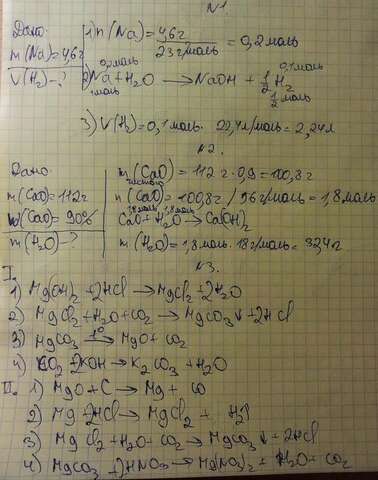 №1
Дано:
m(Na)=4,6г
V(H₂)-?
1) n(Na)= 4,6г / 23г/моль = 0,2моль
0,2моль 0,1моль
2) Na+H₂O → NaOH + ½H₂
1моль ½моль
3) V(H₂)=0,1моль · 22,4л/моль=2,24л
№2.
Дано:
m(CaO)=112г
ω(CaO)=90%
m(H₂O)-?
m(CaO)=112г·0,9=100,8г
чистого
n(CaO)=100,8г/56г/моль=1,8моль
1,8моль 1,8моль
CaO+H₂O→Ca(OH)₂
m(H₂O)=1,8моль·18г/моль=32,4г
№3.
I.
1) Mg(OH)₂+2HCl→MgCl₂+2H₂O
2) MgCl₂+H₂O+CO₂→MgCO₃↓+2HCl
3) MgCO₃ t°→ MgO+CO₂
4) CO₂+2KOH→K₂CO₃+H₂O
II. 1) MgO+C→Mg+CO
2) Mg+2HCl→MgCl₂+H₂↑
3) MgCl₂+H₂O+CO₂→MgCO₃↓+2HCl
4) MgCO₃+2HNO₃→Mg(NO₃)₂+H₂O+CO₂